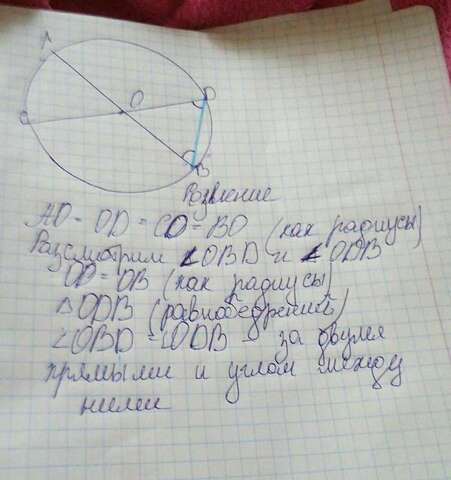 A
O
D
C
B
AO = OD = CO = BO (как радиусы)
Рассмотрим ∠OBD и ∠ODB
OD = OB (как радиусы)
△ODB (равнобедренный)
∠OBD = ∠ODB - за двумя
прямыми и углом между
ними